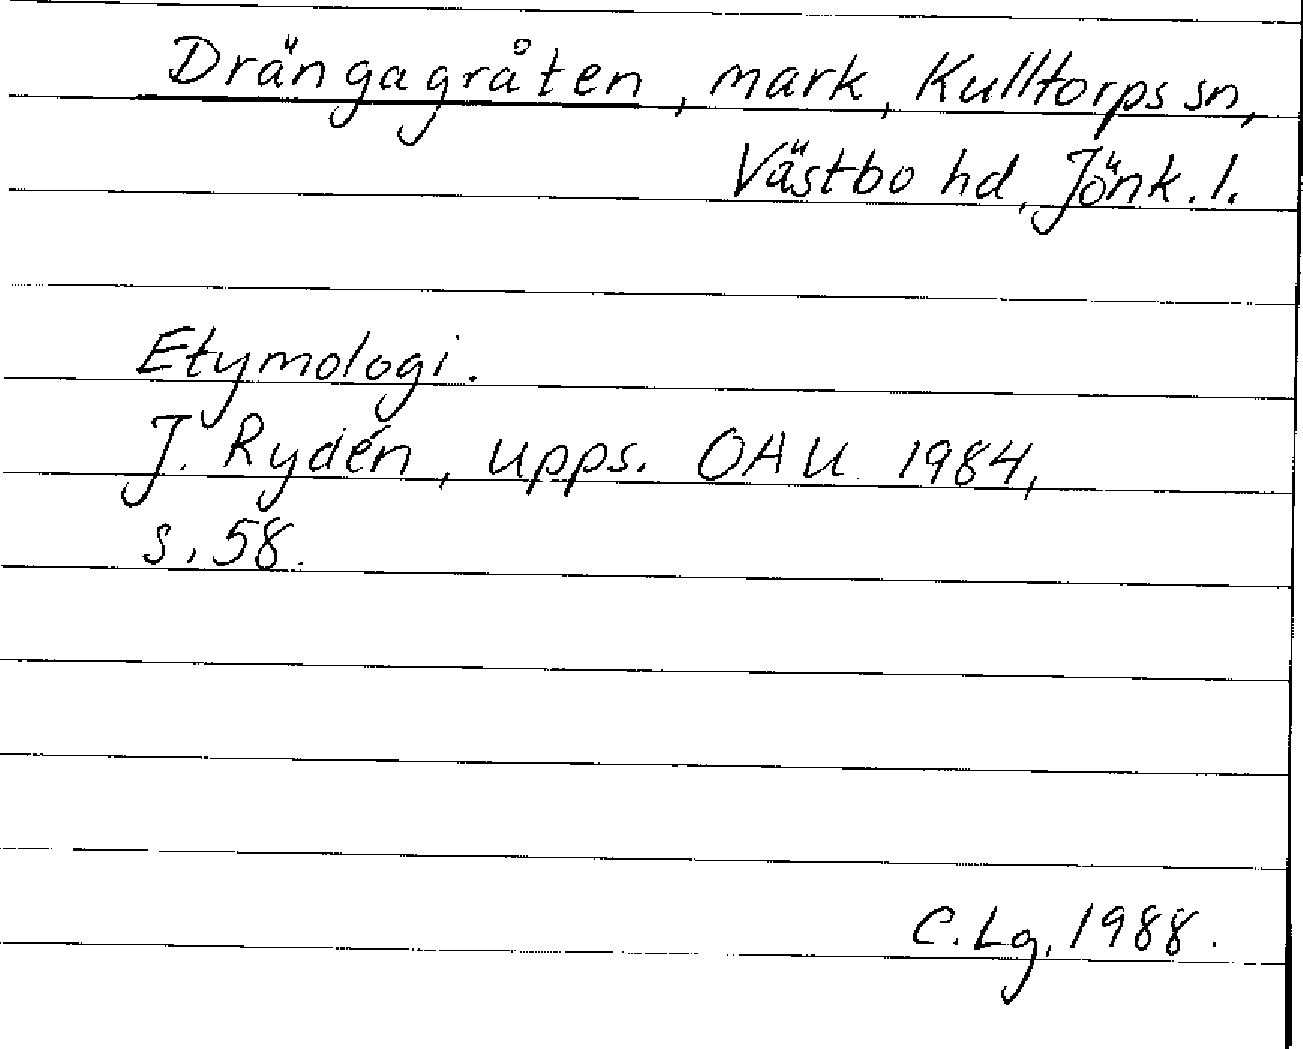 Drängagråten, mark, Kulltorps sn,
Västbo hd, Jönk. l.
Etymologi.
J. Rydén, upps. OAU 1984,
s. 58.
C. Lg. 1988.